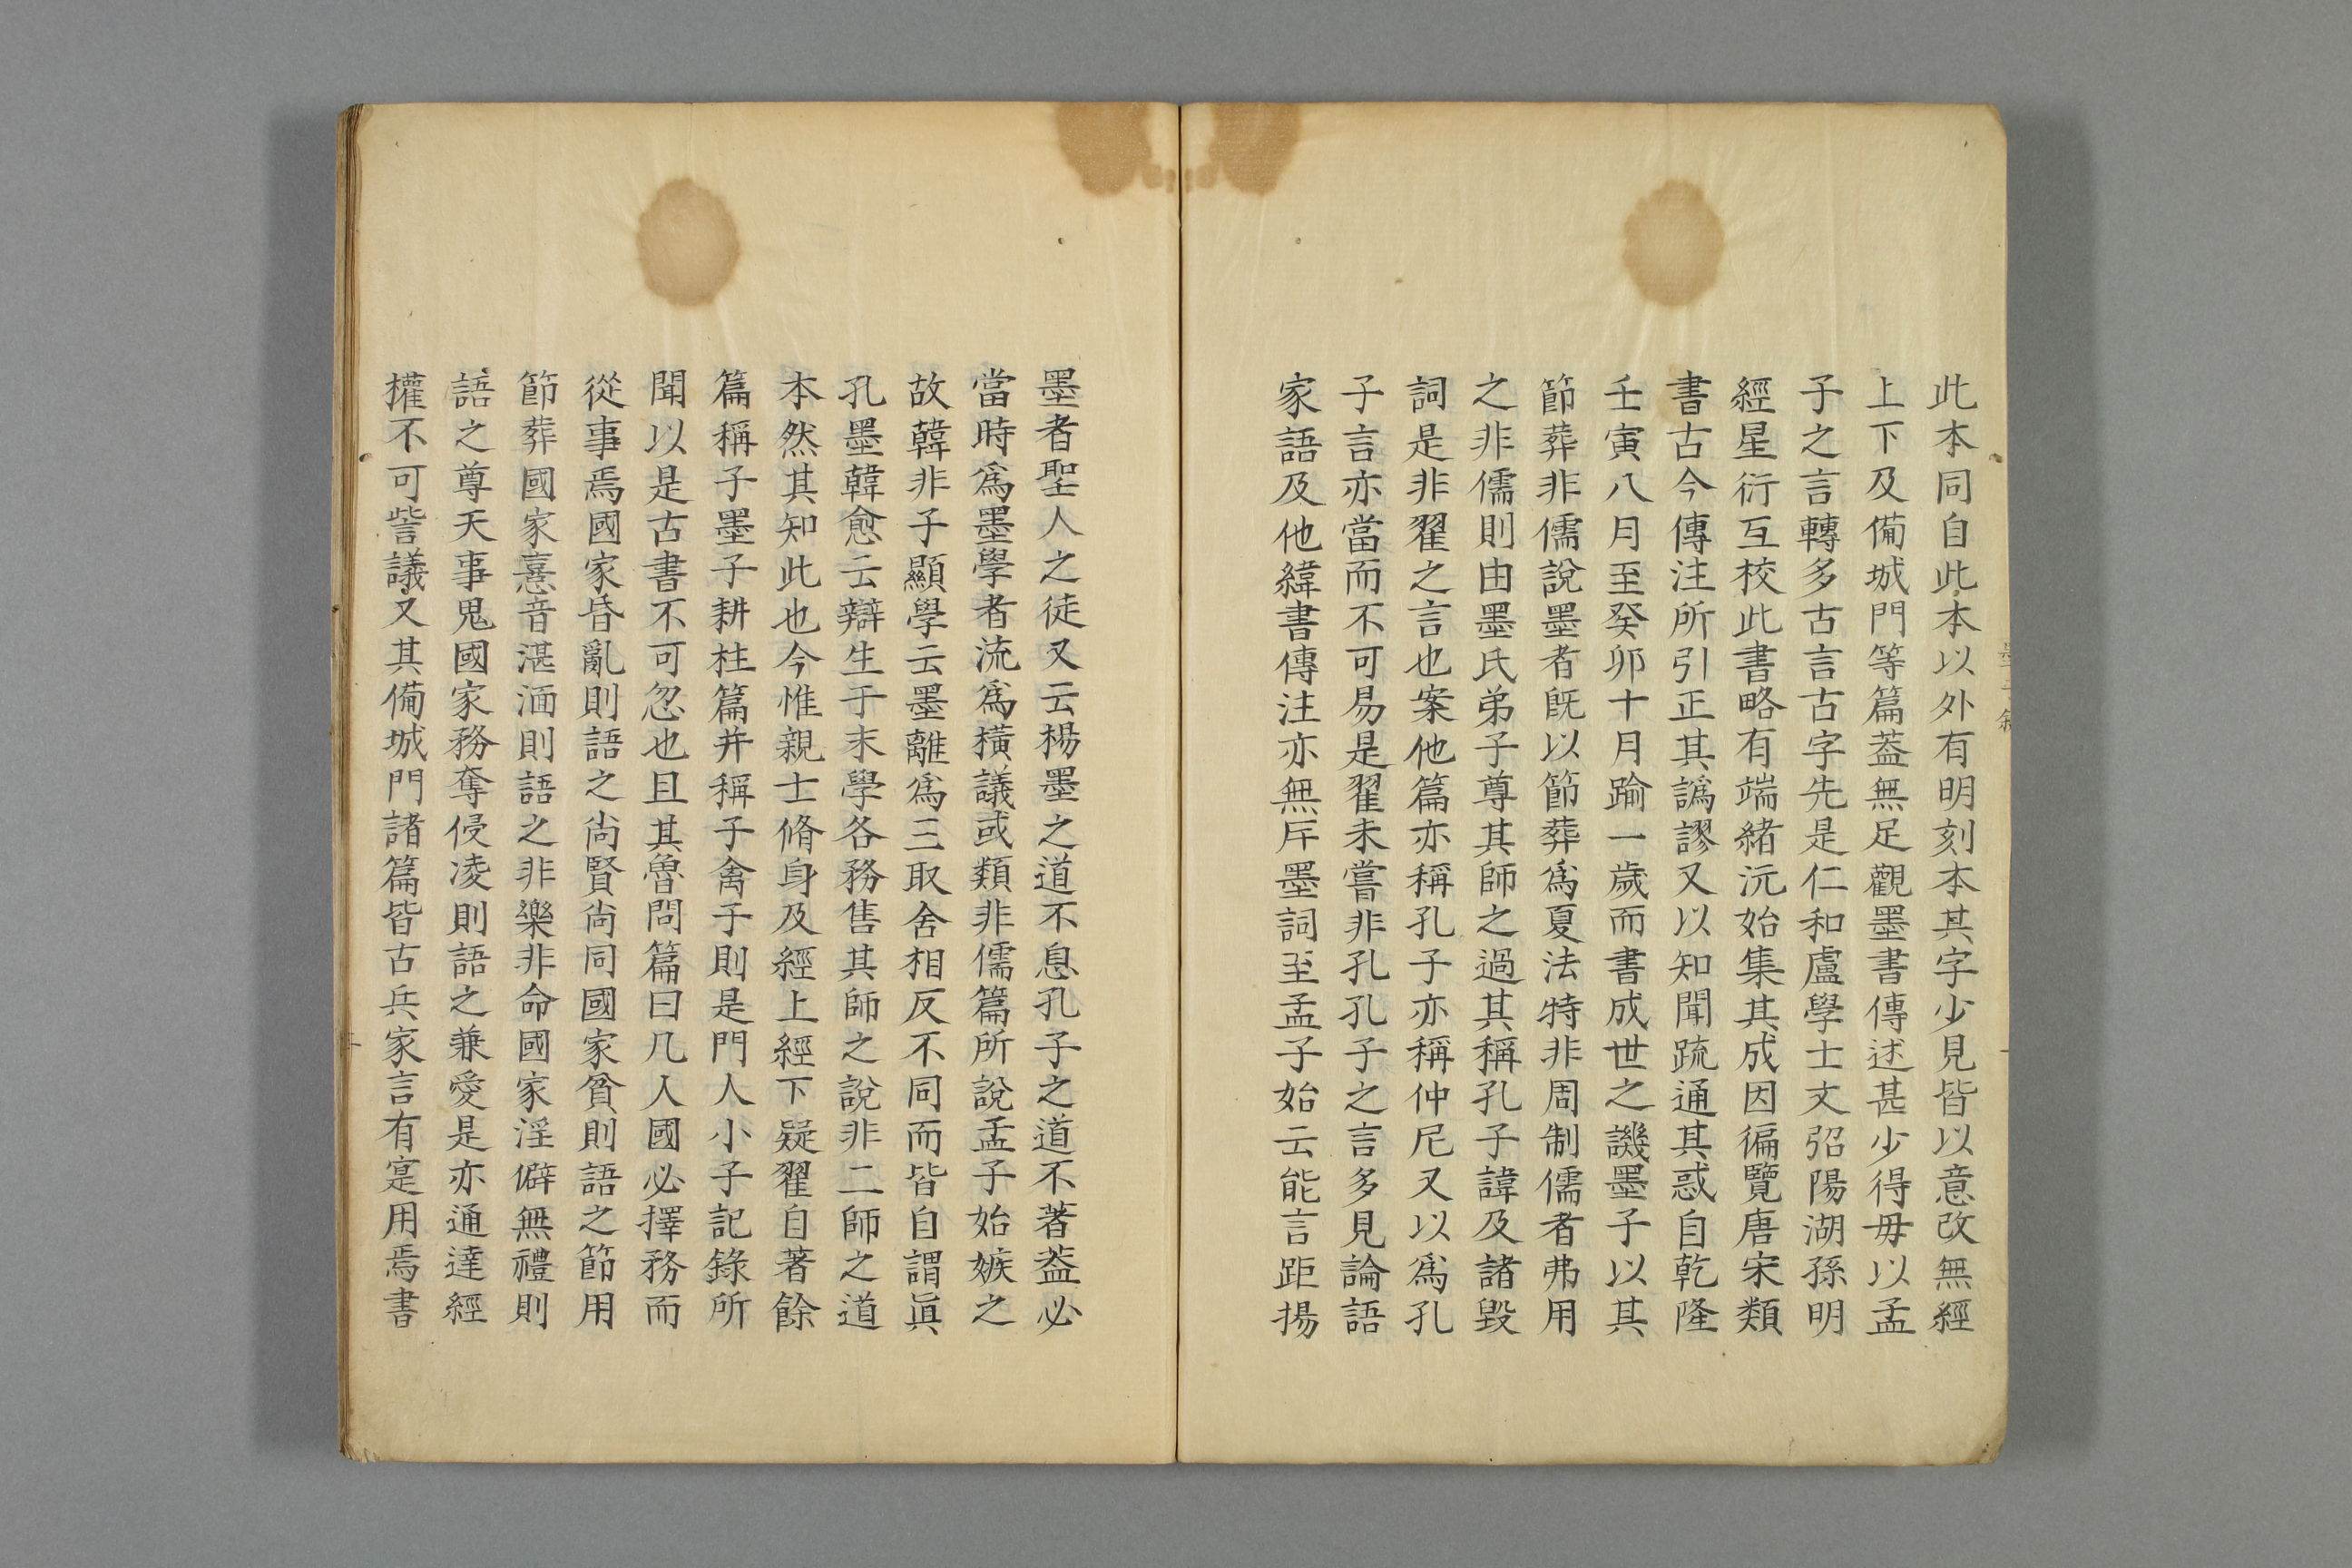 此本同自此本以外有明刻本其字少見皆以意改無經
上下及備城門等篇葢無足觀墨書傳述甚少得毋以孟
子之言轉多古言古字先是仁和盧學士文弨陽湖孫明
經星衍互校此書略有端緒沅始集其成因徧覽唐宋類
書古今傳注所引正其譌謬又以知聞疏通其惑自乾隆
壬寅八月至癸卯十月踰一歲而書成世之譏墨子以其
節葬非儒說墨者旣以節葬爲夏法特非周制儒者弗用
之非儒則由墨氏弟子尊其師之過其稱孔子諱及諸毀
詞是非翟之言也案他篇亦稱孔子亦稱仲尼又以爲孔
子言亦當而不可易是翟未嘗非孔孔子之言多見論語
家語及他緯書傳注亦無斥墨詞至孟子始云能言距揚
墨者聖人之徒又云楊墨之道不息孔子之道不著葢必
當時爲墨學者流爲橫議或類非儒篇所說孟子始嫉之
故韓非子顯學云墨離爲三取舍相反不同而皆自謂眞
孔墨韓愈云辯生于末學各務售其師之說非二師之道
本然其知此也今惟親士脩身及經上經下疑翟自著餘
篇稱子墨子耕柱篇并稱子禽子則是門人小子記錄所
聞以是古書不可忽也且其魯問篇曰凡入國必擇務而
從事焉國家昏亂則語之尙賢尙同國家貧則語之節用
節葬國家憙音湛湎則語之非樂非命國家淫僻無禮則
語之尊天事鬼國家務奪侵凌則語之兼愛是亦通達經
權不可訾議又其備城門諸篇皆古兵家言有寔用焉書